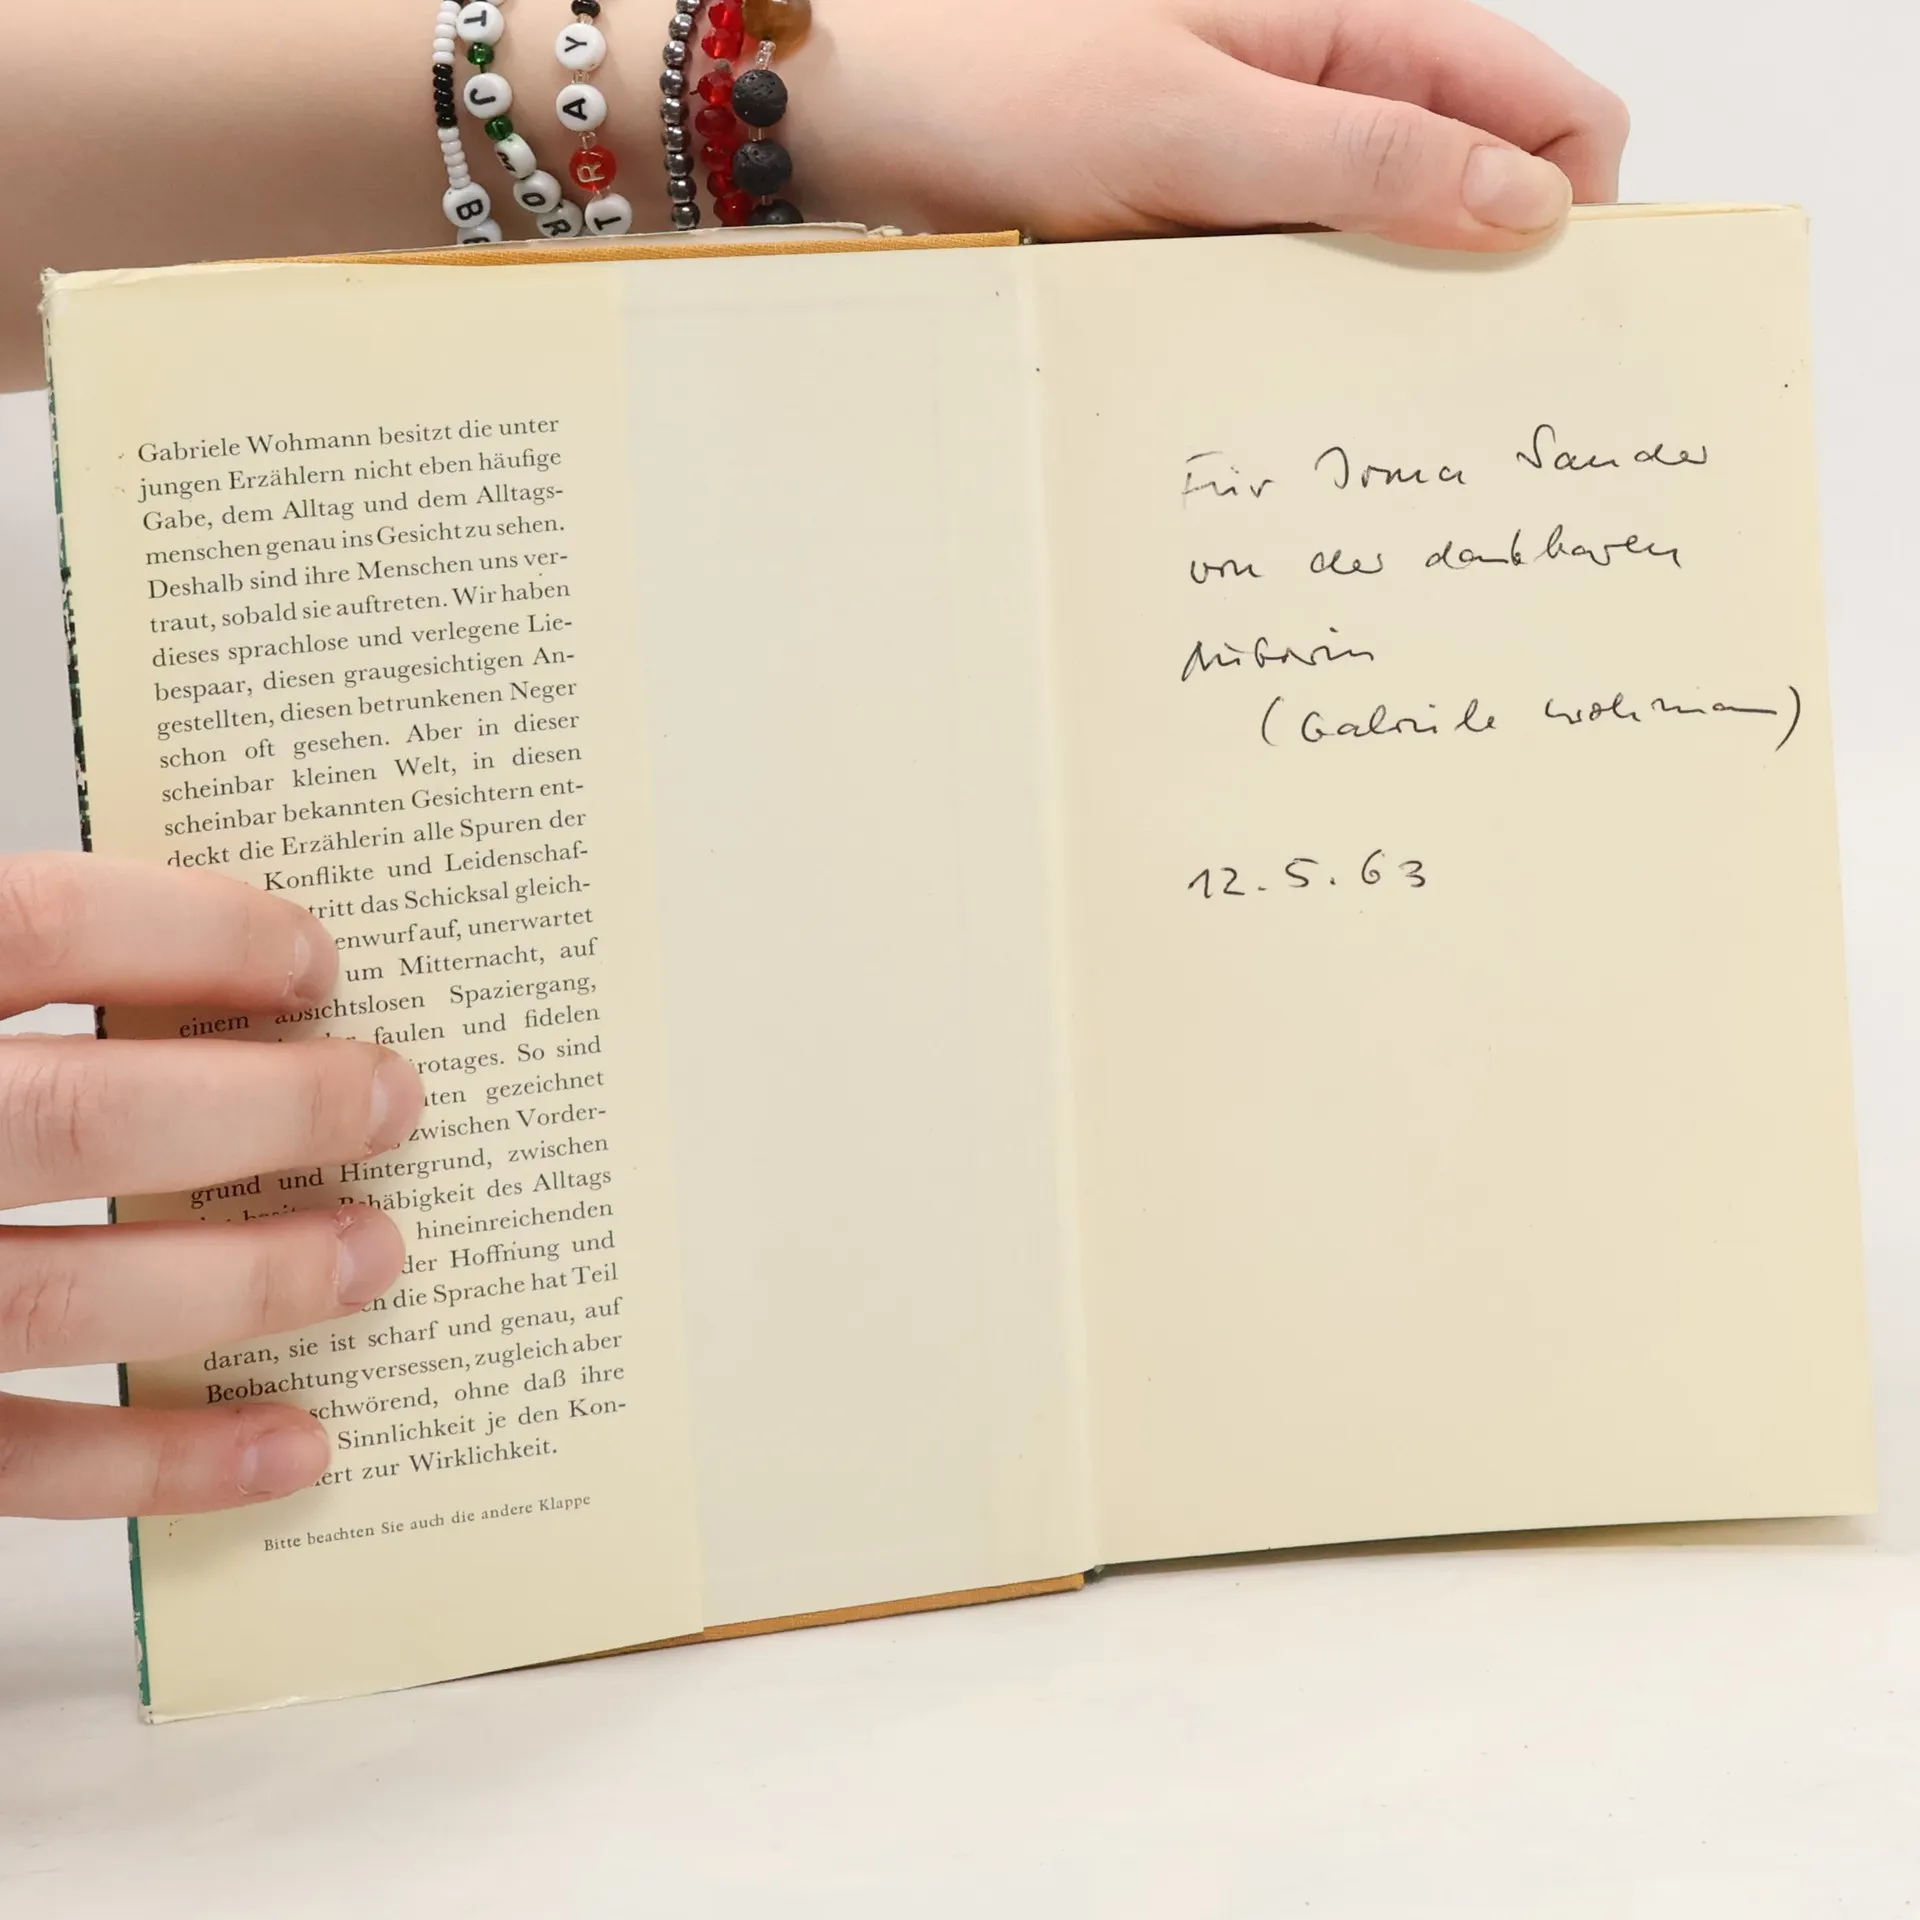 T
J
M
O
R
Y
A
R
T
B
Gabriele Wohmann besitzt die unter
jungen Erzählern nicht eben häufige
Gabe, dem Alltag und dem Alltags-
menschen genau ins Gesicht zu sehen.
Deshalb sind ihre Menschen uns ver-
traut, sobald sie auftreten. Wir haben
dieses sprachlose und verlegene Lie-
bespaar, diesen graugesichtigen An-
gestellten, diesen betrunkenen Neger
schon oft gesehen. Aber in dieser
scheinbar kleinen Welt, in diesen
scheinbar bekannten Gesichtern ent-
deckt die Erzählerin alle Spuren der
Konflikte und Leidenschaf-
tritt das Schicksal gleich-
enwurf auf, unerwartet
um Mitternacht, auf
einem absichtslosen Spaziergang,
faulen und fidelen
rotages. So sind
gezeichnet
zwischen Vorder-
grund und Hintergrund, zwischen
Behäbigkeit des Alltags
hineinreichenden
der Hoffnung und
die Sprache hat Teil
daran, sie ist scharf und genau, auf
Beobachtung versessen, zugleich aber
schwörend, ohne daß ihre
Sinnlichkeit je den Kon-
ert zur Wirklichkeit.
Bitte beachten Sie auch die andere Klappe
Für Irma Sander
von der dankbaren
Autorin
(Gabriele Wohmann)
12.5.63